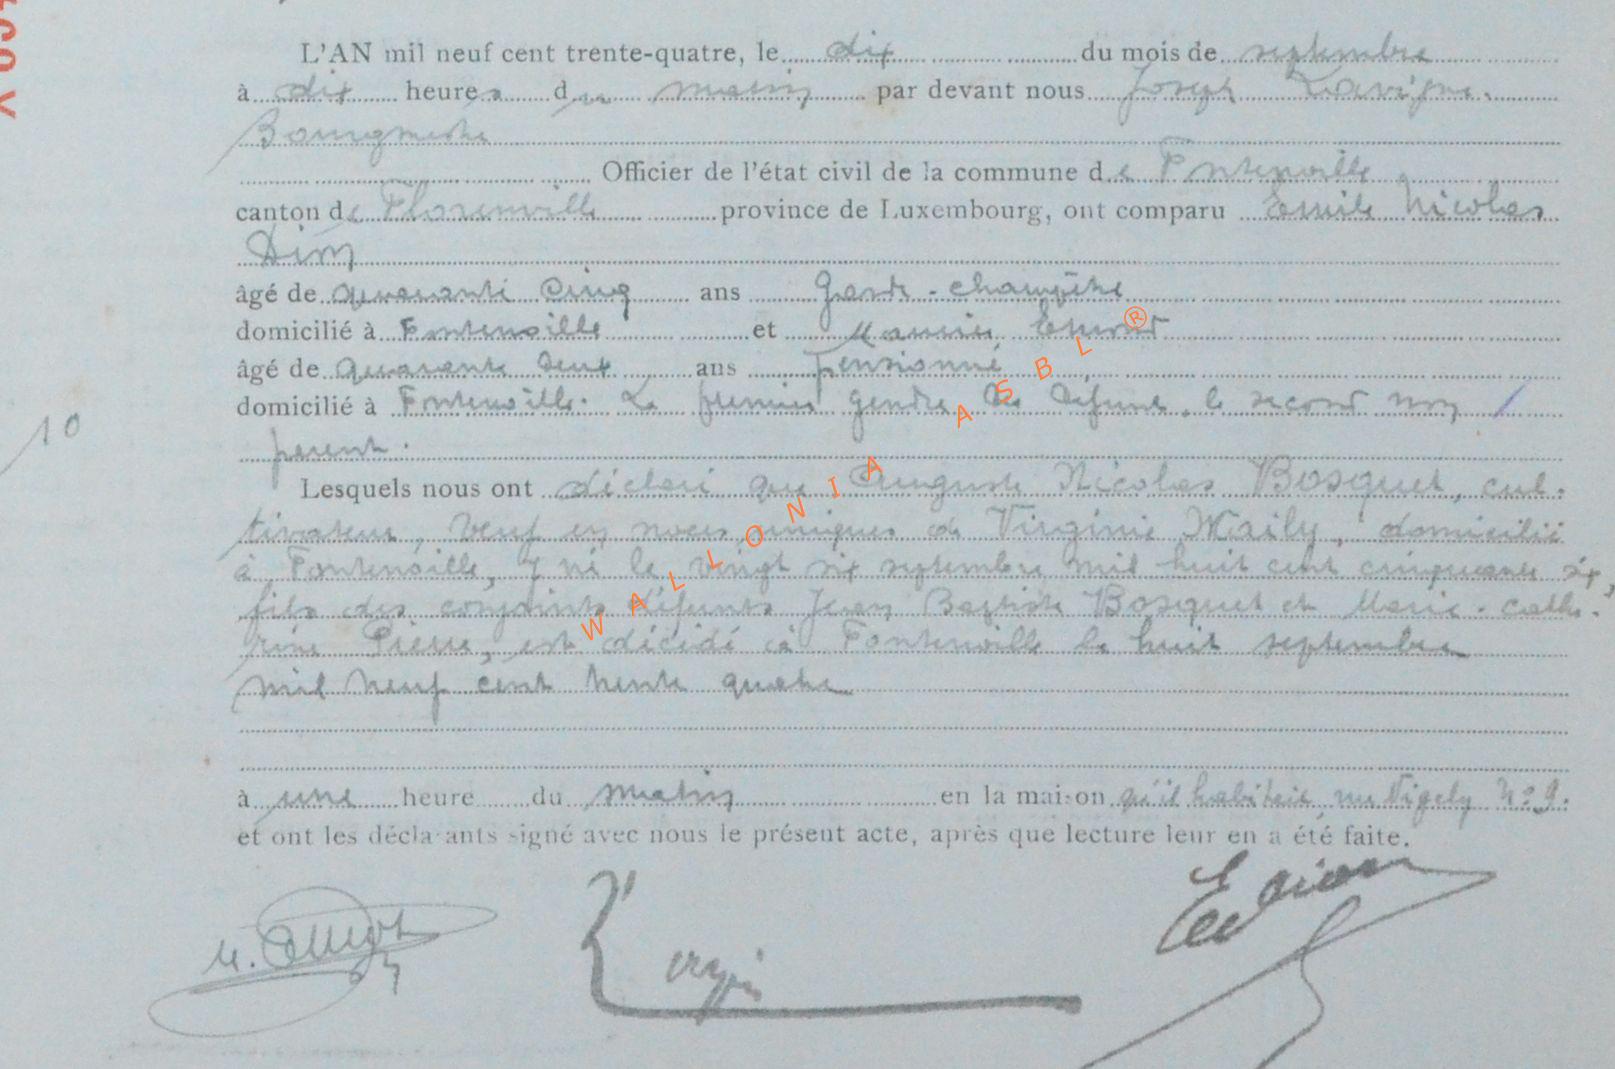 L'AN mil neuf cent trente-quatre, le dix du mois de septembre
à dix heures du matin par devant nous Joseph Lavigne,
Bourgmestre
Officier de l'état civil de la commune de Fontenoille
canton de Florenville province de Luxembourg, ont comparu Emile Nicolas
âgé de quarante cinq ans Garde-champêtre
domicilié à Fontenoille et
âgé de quarante deux ans pensionné
domicilié à Fontenoille. Le premier gendre du défunt, le second non
parent.
10
Lesquels nous ont déclaré que Auguste Nicolas Bosquet, cul-
tivateur, veuf en noces uniques de Virginie Maily, domicilié
à Fontenoille, y né le vingt six septembre mil huit cent cinquante six,
fils des conjoints défunts Jean Baptiste Bosquet et Marie-Cathe-
rine Pierre, est décédé à Fontenoille le huit septembre
mil neuf cent trente quatre
à une heure du matin en la maison qu'il habitait N° 9.
et ont les déclarants signé avec nous le présent acte, après que lecture leur en a été faite.
WALLONIA ASBL ®